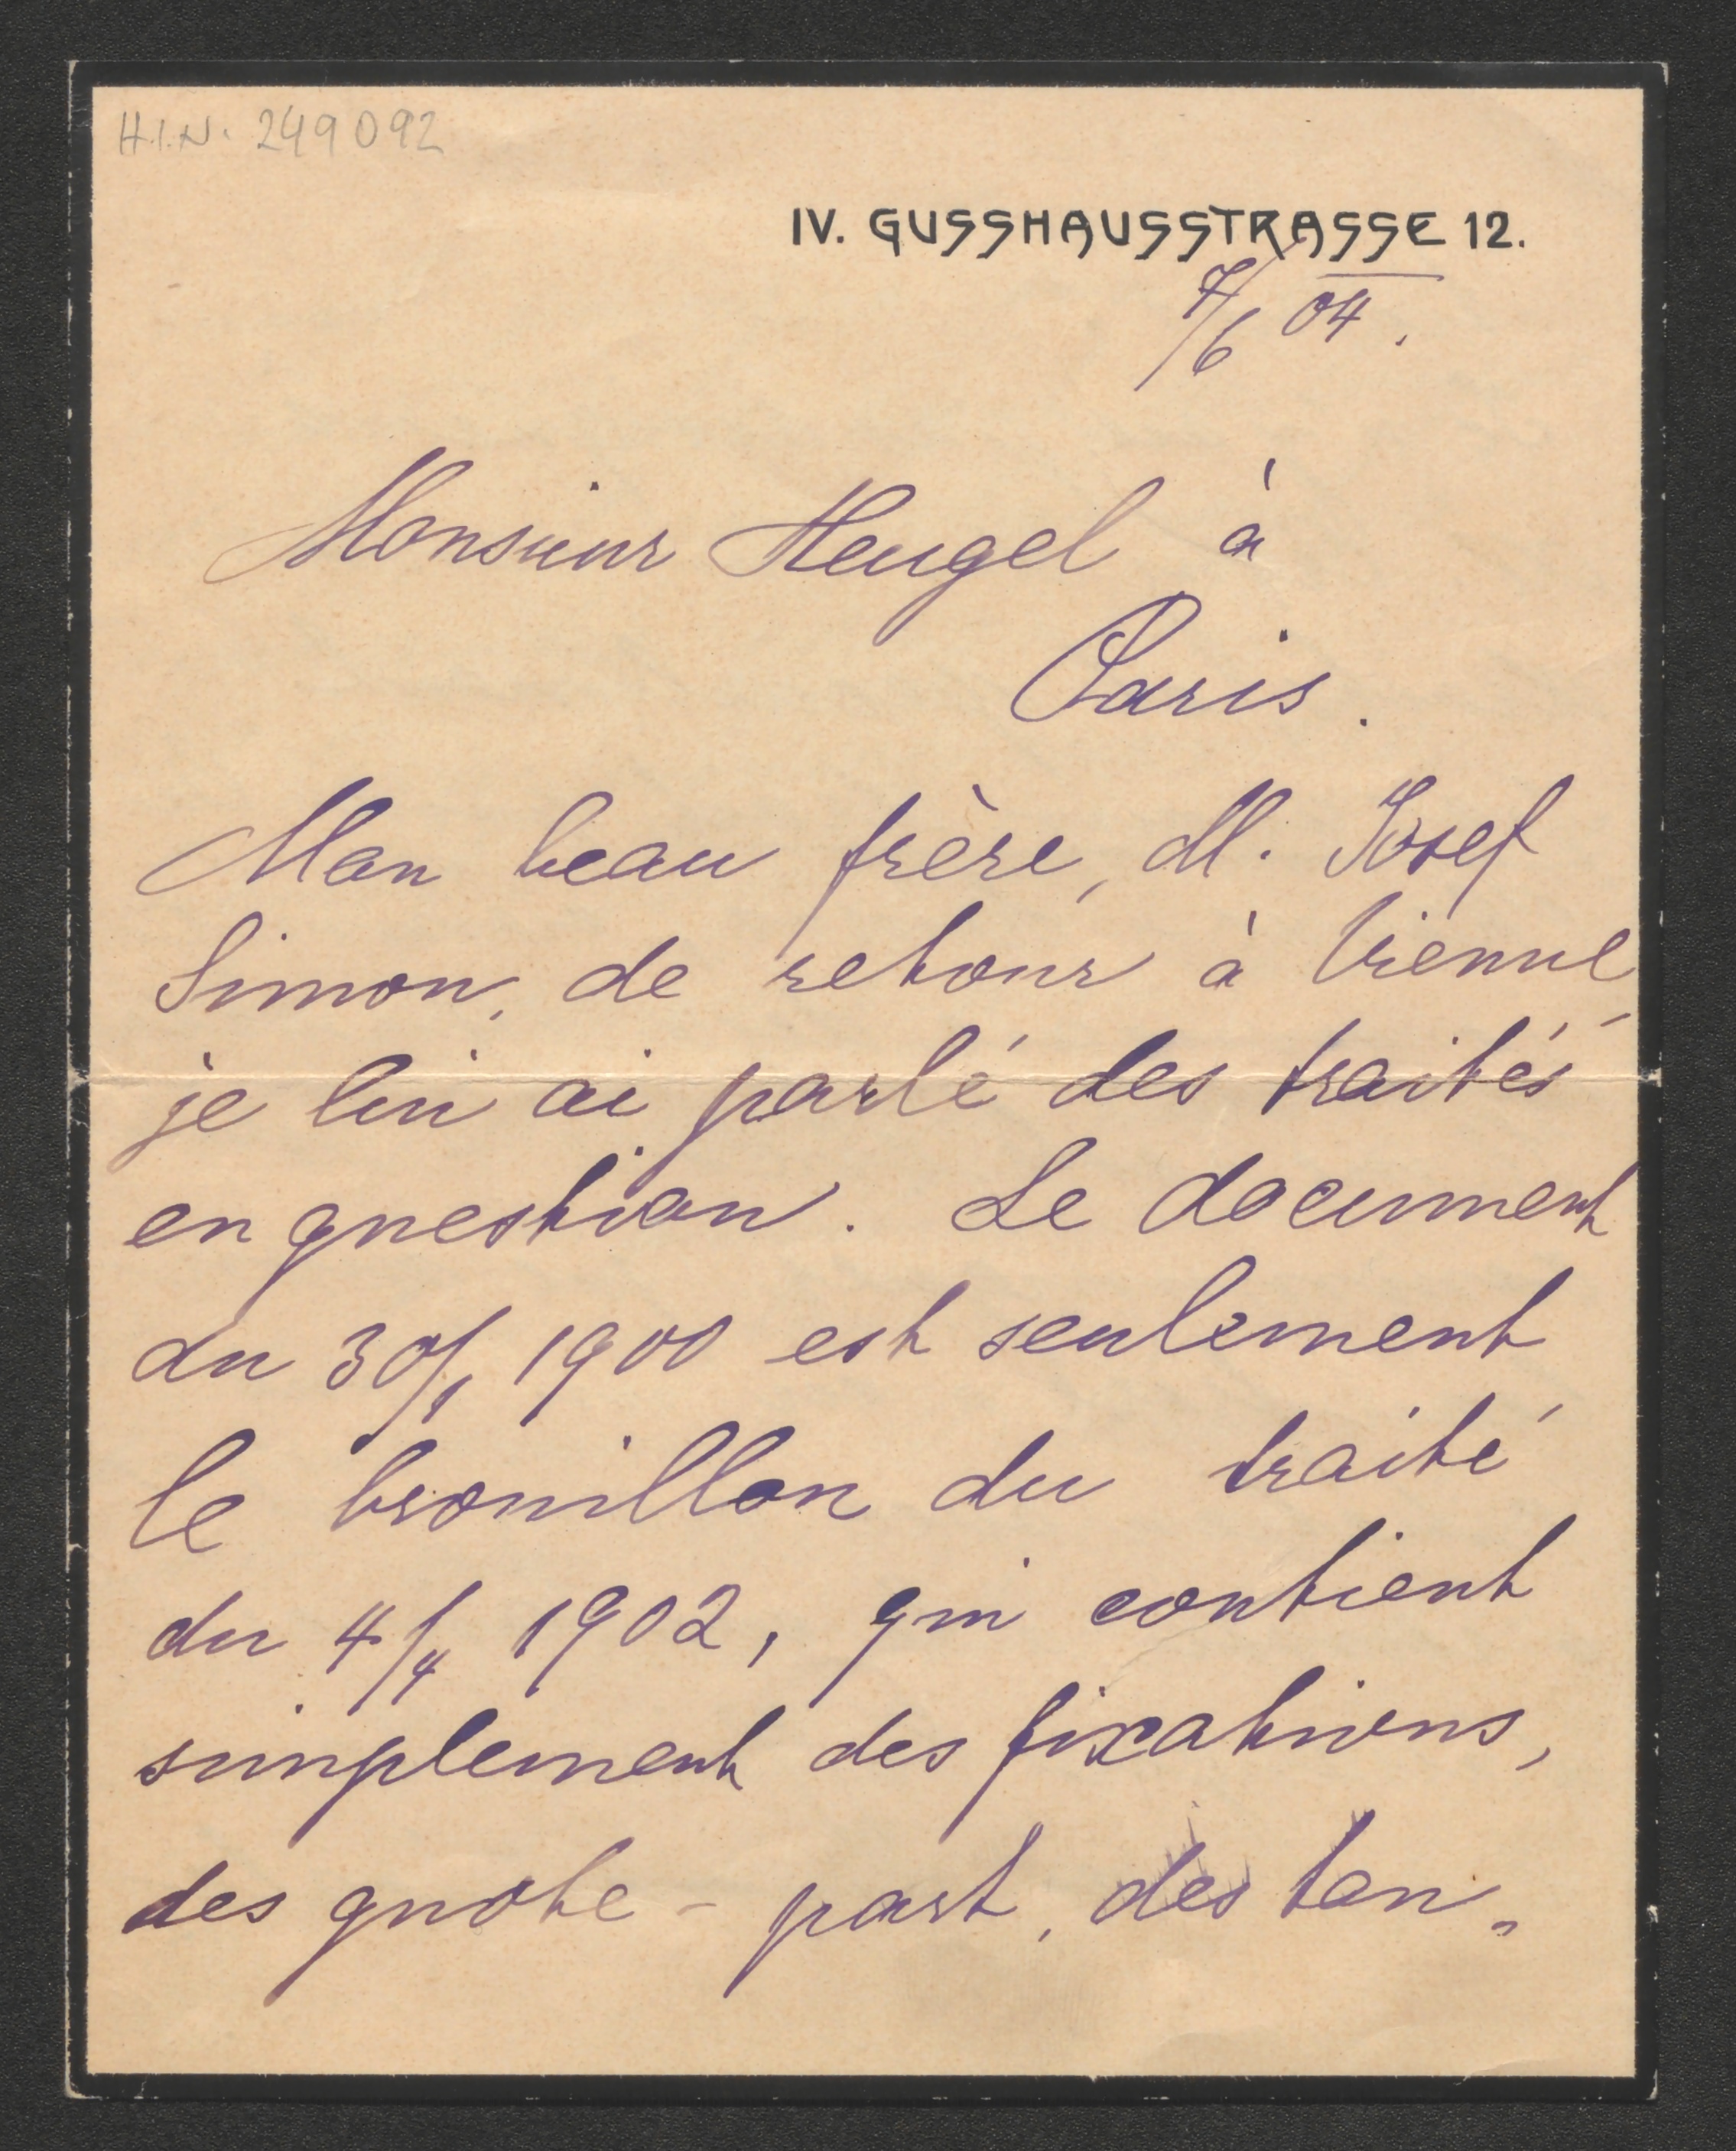 H.I.N. 249092
IV. GUSSHAUSSTRASSE 12.
7/6 04.
Monsieur Heugel à
Paris.
Mon beau frère, M. Josef
Simon, de retour à Vienne
je lui ai parlé des traités
en question. Le document
du 30/1 1900 est seulement
le brouillon du traité
du 4/4 1902, qui contient
simplement des fixations,
des quote-part, des tan-